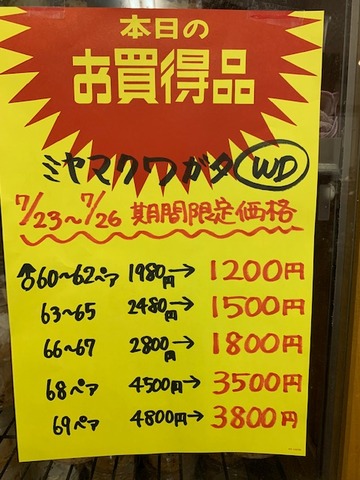 本日の
お買得品
ミヤマクワガタ WD
7/23〜7/26 期間限定価格
♂60〜62ペア 1980円→1200円
63〜65 2480円→1500円
66〜67 2800円→1800円
68ペア 4500円→3500円
69ペア 4800円→3800円